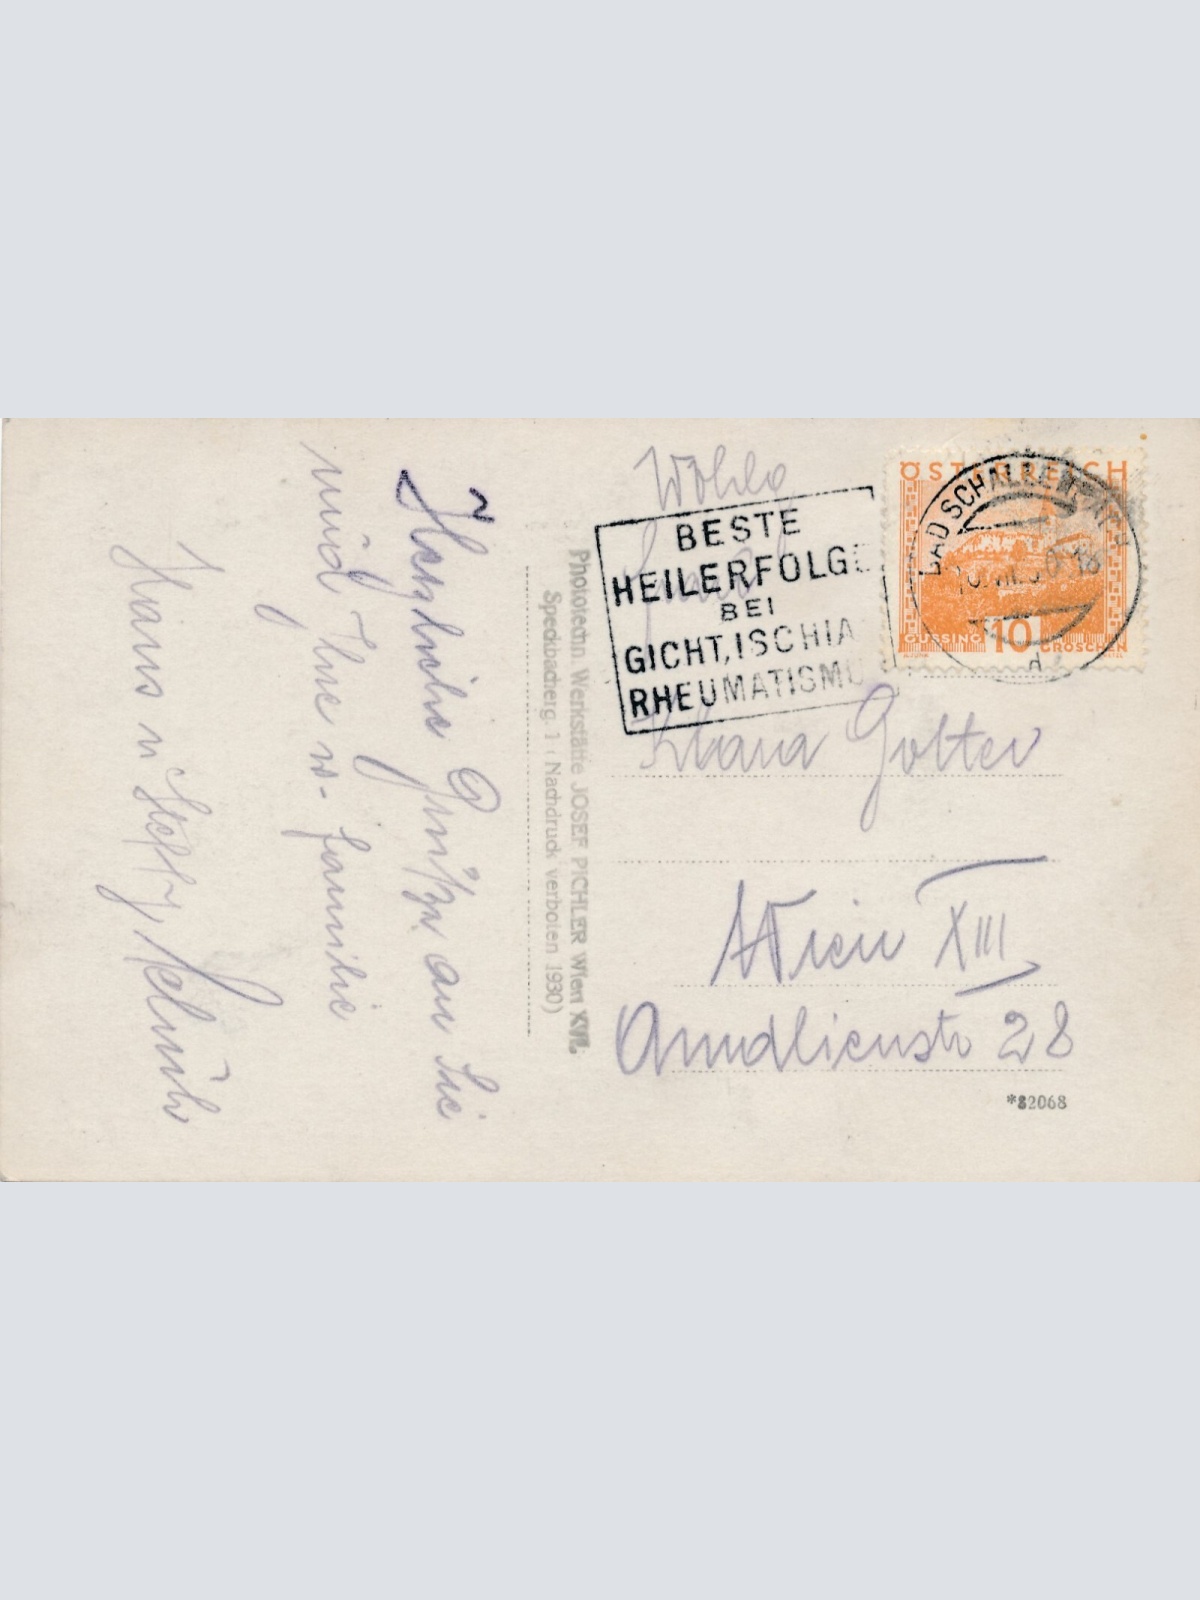 Herzliche Grüße an Sie
und Ihre w. Familie
Hans u Steffy
Phototechn. Werkstätte JOSEF PICHLER Wien XVI.
Speckbacherg. 1 (Nachdruck verboten 1930)
Wohlg
BESTE
HEILERFOLGE
BEI
GICHT, ISCHIA
RHEUMATISMU
ÖSTERREICH
BAD SCHALLERBACH
GÜSSING 10 GROSCHEN
d
Klara Golter
Wien XIII
28
*82068